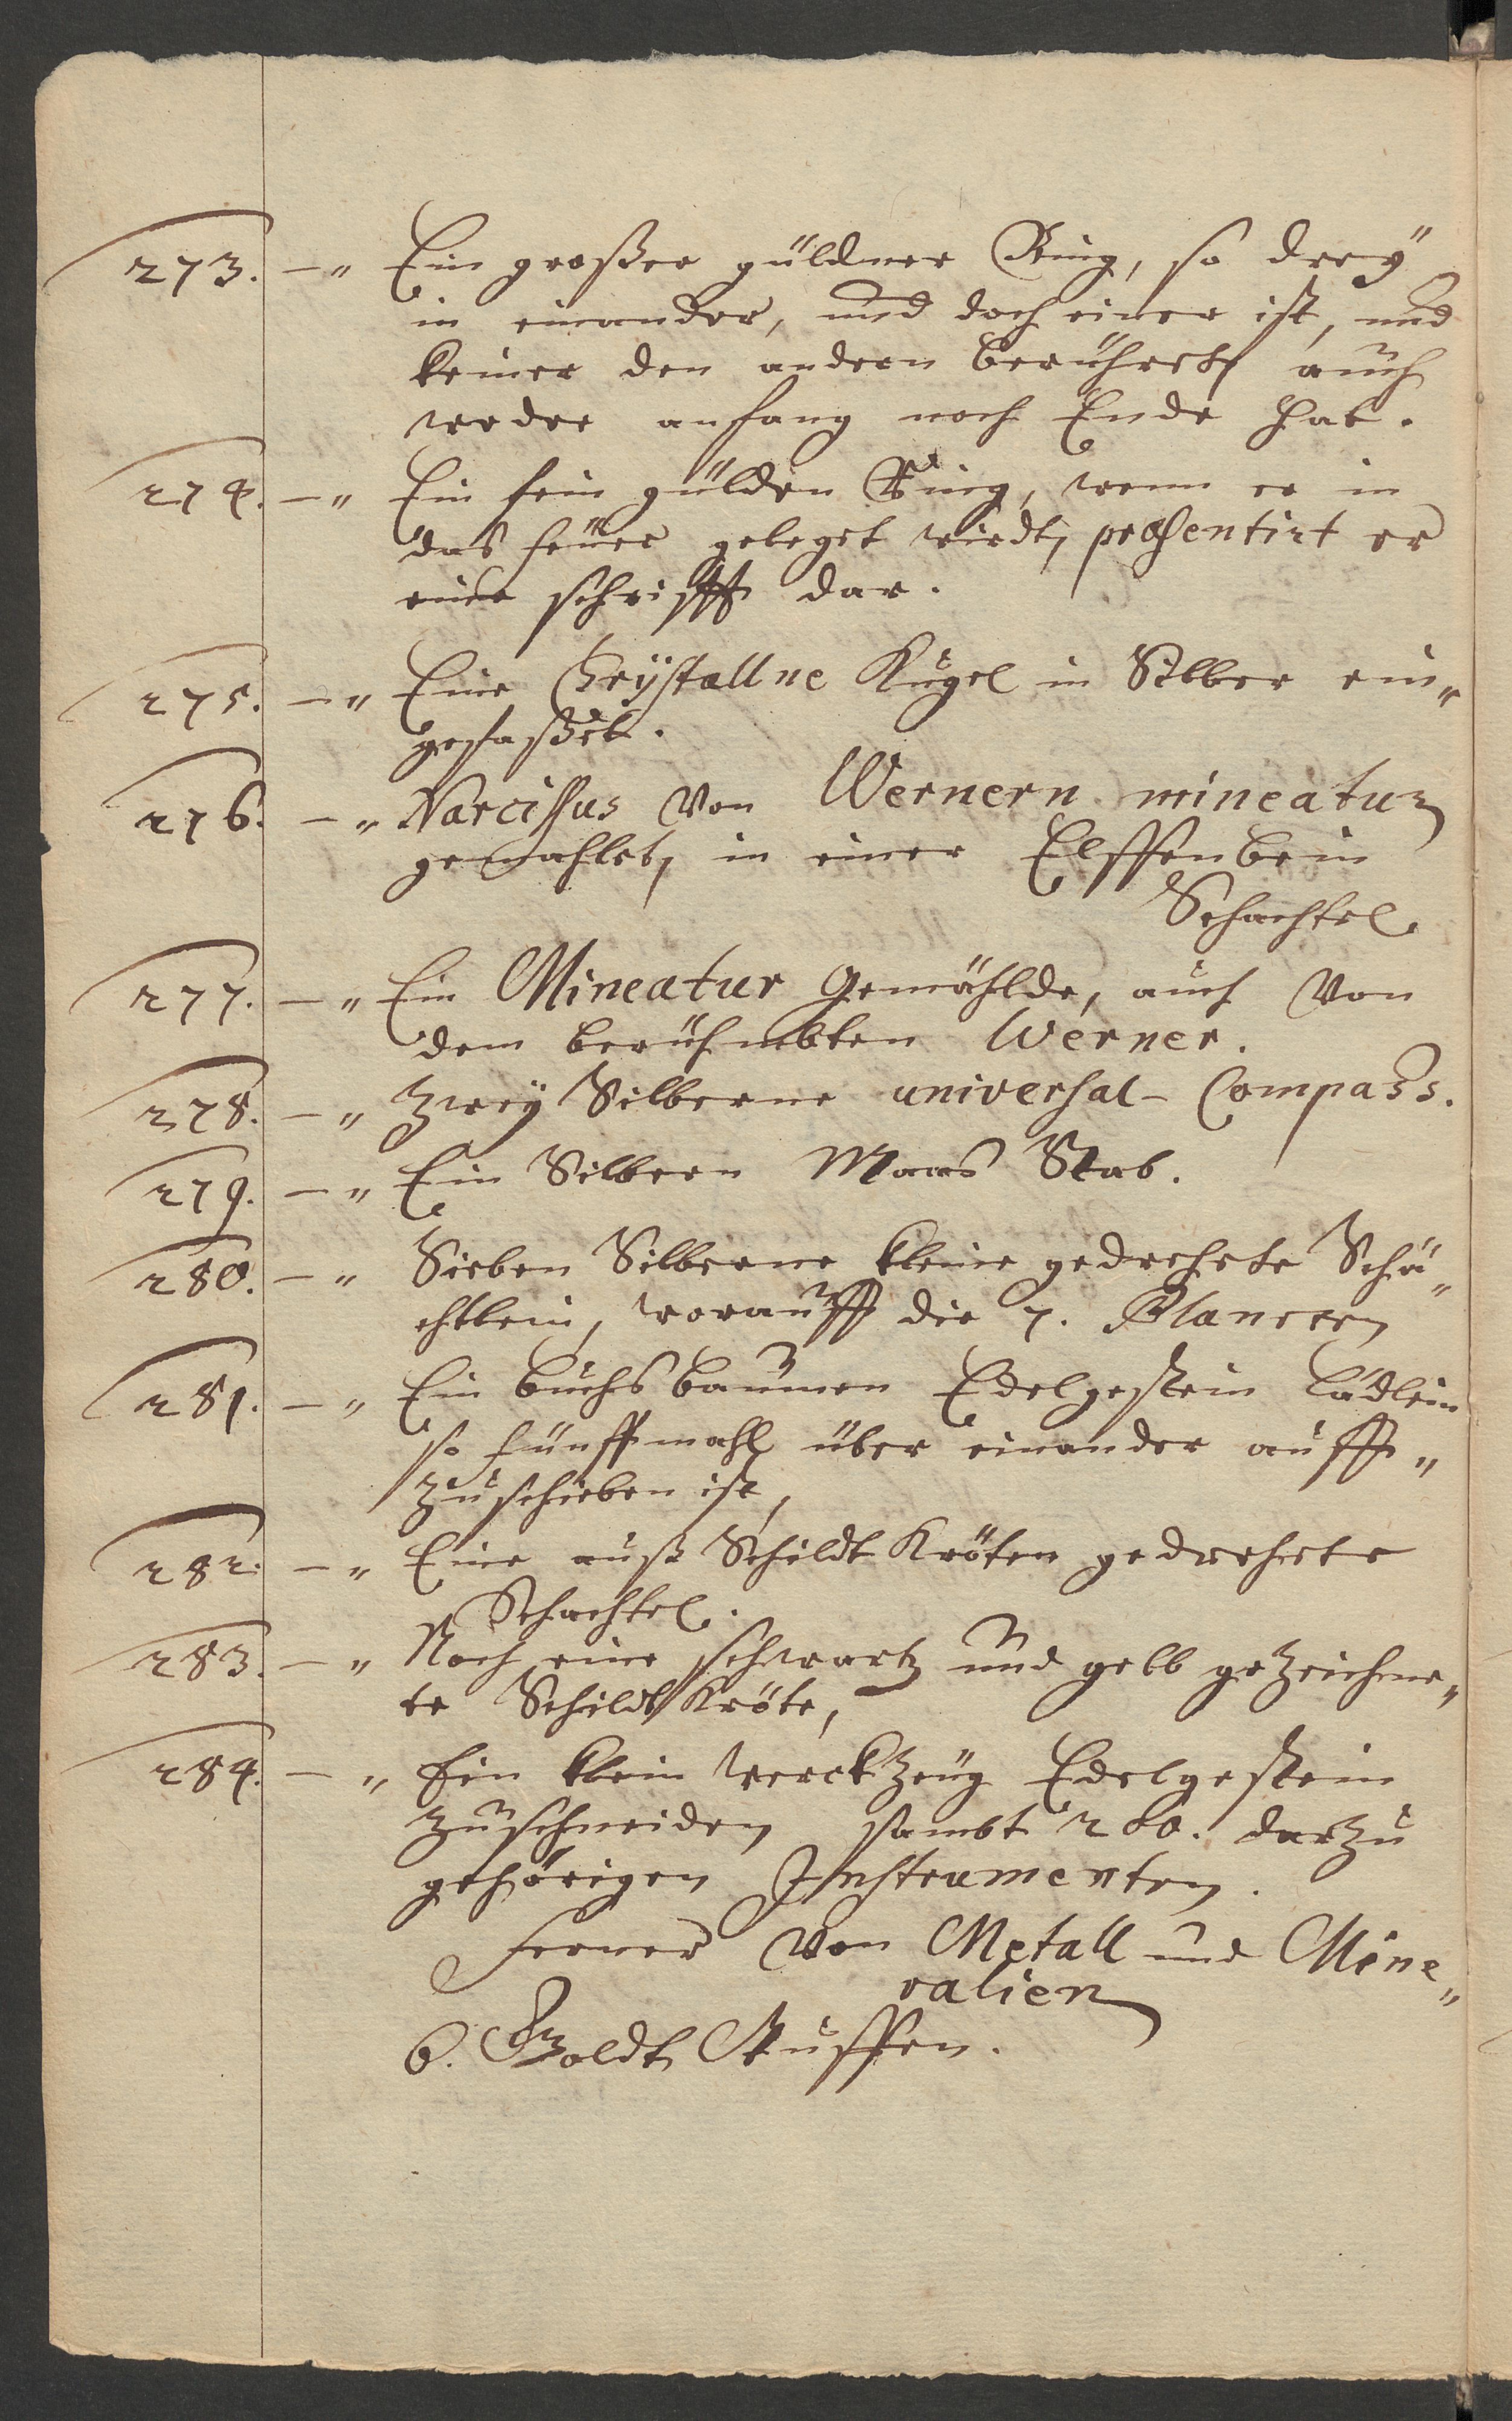 273. -„ Ein großer güldner Ring, so dreÿ
in einander, und doch einer ist, und
keiner den andern berühret, auch
weder anfang noch Ende hat.
274. -„ Ein fein gülden Ring, wenn er in
das feüer geleget wirdt, præsentirt er
eine schrifft dar.
275. -„ Eine Crÿstallne Kugel in Silber ein„
gefaßet.
276. -„ Narcissus von Wernern mineatur
gemahlet, in einer Elffenbein
Schachtel.
277. -„ Ein Mineatur Gemählde, auch von
dem berühmbten Werner.
278. -„ Zweÿ Silberne universal-Compass.
279. -„ Ein Silbern Maas Stab.
280. -„ Sieben Silberne kleine gedrehete Schä„
chtlein, worauff die 7. Planeten
281. -„ Ein buchsbaumen Edelgestein Lädlein
so fünffmahl über einander auff„
zuschieben ist,
282. -„ Eine auß Schildt Kröten gedrehete
Schachtel.
283. -„ Noch eine schwartz und gelb gezeichne„
te Schildt Kröte,
284. -„ Ein klein werckzeug Edelgestein
zuschneiden sambt 200. darzu
gehörigen Instrumenten.
Ferner von Metall und Mine„
ralien
6. Goldt Stuffen.